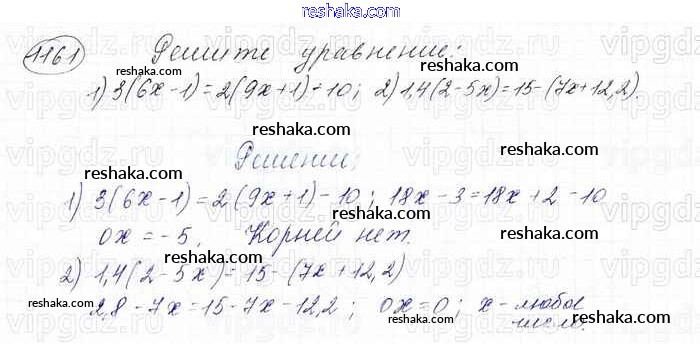 reshaka.com
1161 Решите уравнение:
1) 3(6x-1)=2(9x+1)-10; 2) 1,4(2-5x)=15-(7x+12,2).
reshaka.com reshaka.com reshaka.com
reshaka.com reshaka.com
Решение:
reshaka.com reshaka.com reshaka.com
1) 3(6x-1)=2(9x+1)-10; 18x-3=18x+2-10
0x=-5. Корней нет.
reshaka.com reshaka.com
2) 1,4(2-5x)=15-(7x+12,2)
reshaka.com reshaka.com reshaka.com
2,8-7x=15-7x-12,2; 0x=0; x-любое
число.
reshaka.com reshaka.com